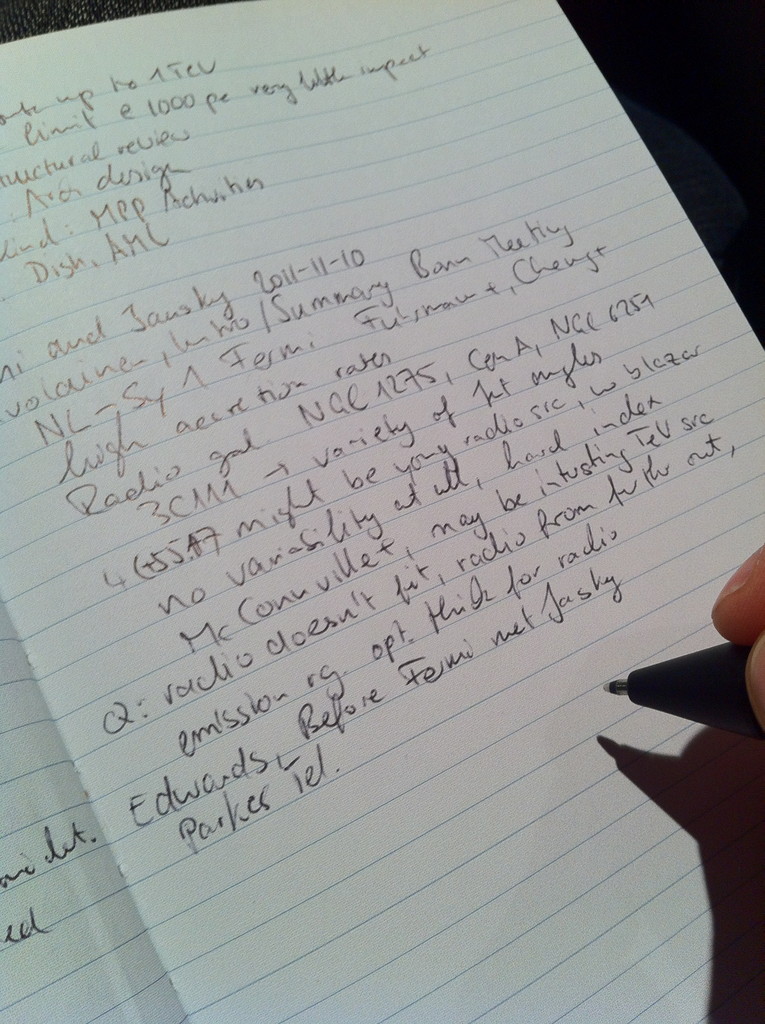 up to 1 TeV
limit @ 1000 pe very little impact
structural review
Arch design
MPP Activities
Dish, AMC
and Jansky 2011-11-10
Intro/Summary Bonn Meeting
NL-Sy 1 Fermi Fuhrmann+, Cheng+
high accretion rates
Radio gal. NGC 1275, CenA, NGC 6251
3C111 → variety of jet angles
4C+55.17 might be young radio src, no blazar
no variability at all, hard index
McConville+, may be intersting TeV src
Q: radio doesn't fit, radio from further out,
emission rg. opt. thick for radio
Edwards, Before Fermi met Jasky
Parkes Tel.